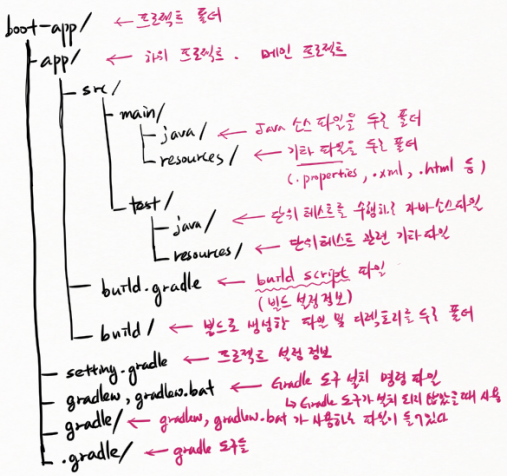 boot-app/ ← 프로젝트 폴더
app/ ← 하위 프로젝트. 메인 프로젝트
src/
main/
java/ ← Java 소스 파일을 두는 폴더
resources/ ← 기타 파일을 두는 폴더
(.properties, .xml, .html 등)
test/
java/ ← 단위 테스트를 수행하는 자바 소스 파일
resources/ ← 단위 테스트 관련 기타 파일
build.gradle ← build script 파일
(빌드 설정 정보)
build/ ← 빌드로 생성한 파일 및 디렉토리를 두는 폴더
setting.gradle ← 프로젝트 설정 정보
gradlew, gradlew.bat ← Gradle 도구 설치 명령 파일
↳ Gradle 도구가 설치 되지 않았을 때 사용
gradle/ ← gradlew, gradlew.bat 가 사용하는 파일이 들어있다
.gradle/ ← gradle 도구들